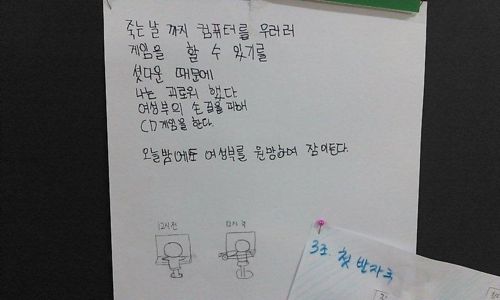 죽는 날 까지 컴퓨터를 우러러
게임을 할 수 있기를
셧다운 때문에
나는 괴로워 했다
여성부의 손길을 피해
CD게임을 한다.
오늘밤에도 여성부를 원망하며 잠이든다.
12시 전
12시 후
3조. 첫 발자국